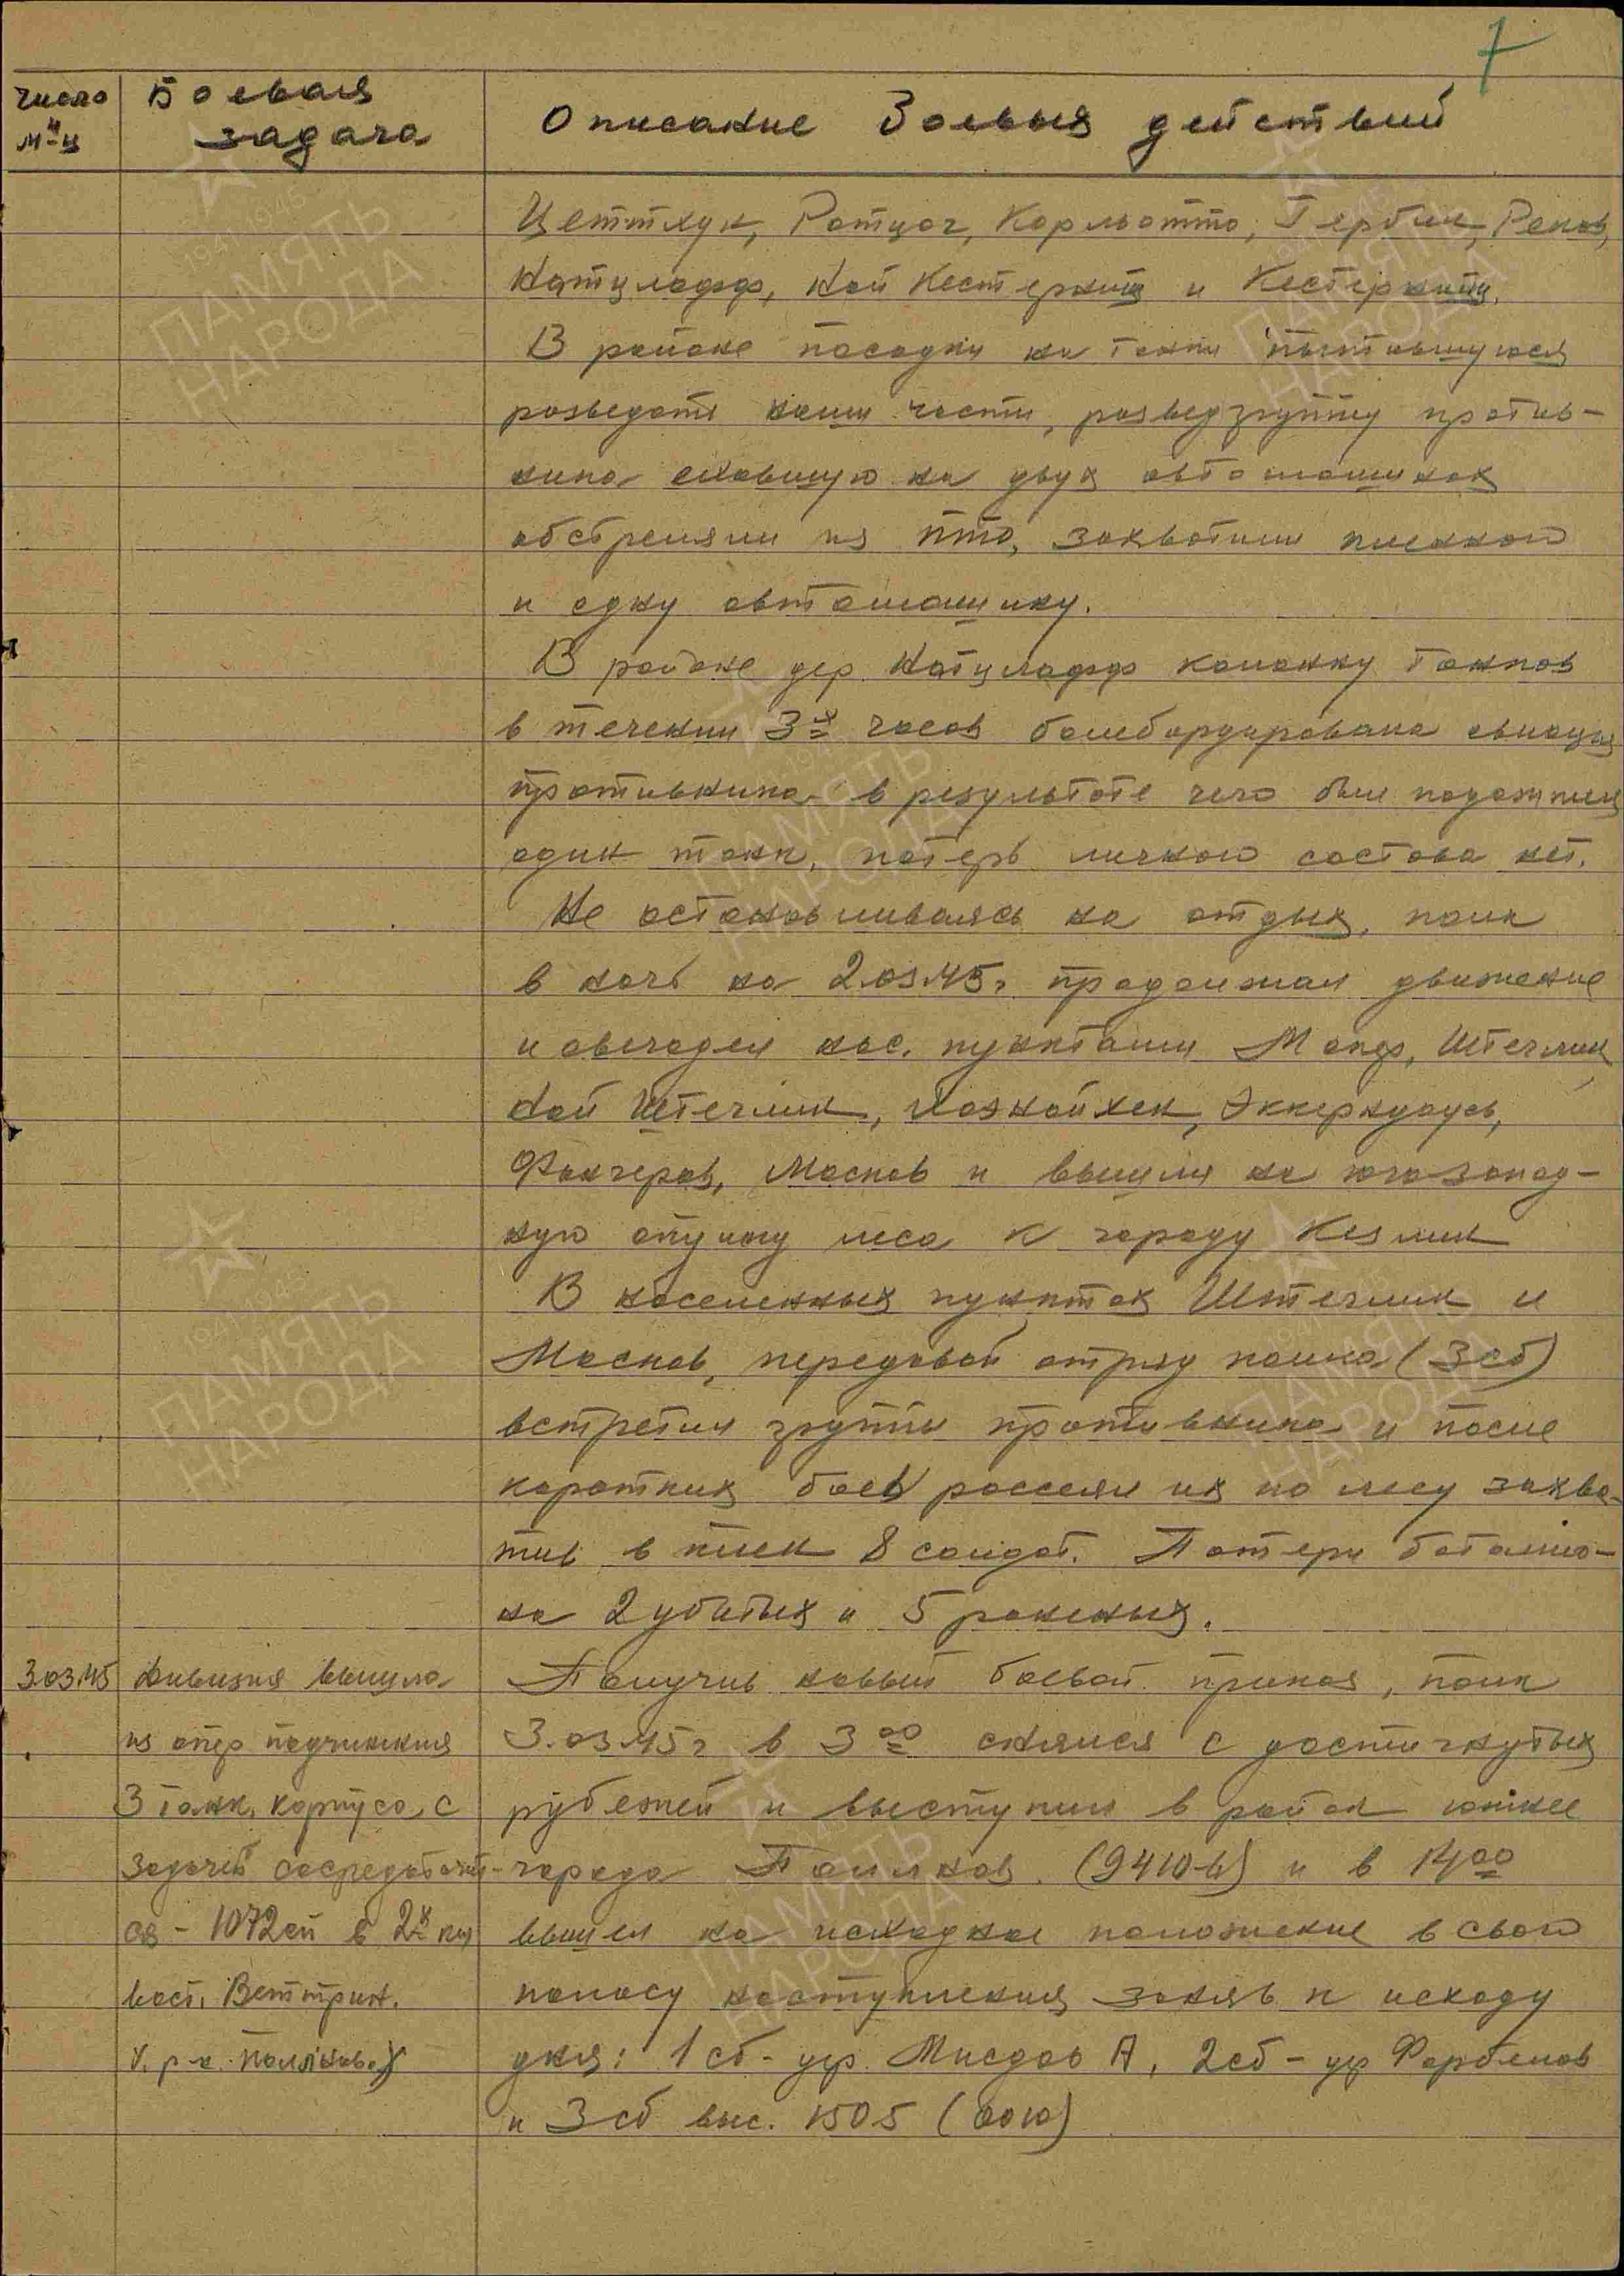 7
число
и
м-ц
Боевая
задача
Описание Боевых действий
Цеттхун, Ратцог, Карльотто, Гербин, Реков,
Натцлафф, Ной Кестернитц и Кестернитц.
В районе посадки на танки пытавшуюся
разведать наши части, разведгруппу против-
ника ехавшую на двух автомашинах
обстреляли из ПТО, захватили пленного
и одну автомашину.
В районе дер. Натцлафф колонну танков
в течении 3х часов бомбардировала авиация
противника в результате чего был подожжен
один танк, потерь личного состава нет.
Не останавливаясь на отдых, полк
в ночь на 2.03.45г продолжал движение
и овладел нас. пунктами Штеглин
Ной Штеглин, Эккернхауз,
Функеров, Маснов и вышли на юго-запад-
ную опушку леса к городу Кезлин
В населенных пунктах Штеглин и
Маснов, передовой отряд полка (3сб)
встретил группы противника и после
коротких боев рассеял их по лесу захва-
тив в плен 8 солдат. Потери батальо-
на 2 убитых и 5 раненых.
3.03.45 Дивизия вышла
из опер подчинения
3 танк. корпуса, с
задачей сосредоточит-
ся - 1072сп в 2х км
вост. Веттрин.
/. р-н. Поллнов./
Получив новый боевой приказ, полк
3.03.45г в 3 00 снялся с достигнутых
рубежей и выступил в район южнее
города Поллнов. (9410-в) и в 14 00
вышел на исходное положение в свою
полосу наступления заняв к исходу
дня: 1сб - дер. Мисдов А, 2сб - др Фарбецов
и 3сб выс. 150 5 (0010)
ПАМЯТЬ
НАРОДА
1941-1945
ПАМЯТЬ
НАРОДА
1941-1945
ПАМЯТЬ
НАРОДА
ПАМЯТЬ
НАРОДА
1941-1945
ПАМЯТЬ
НАРОДА
1941-1945
ПАМЯТЬ
НАРОДА